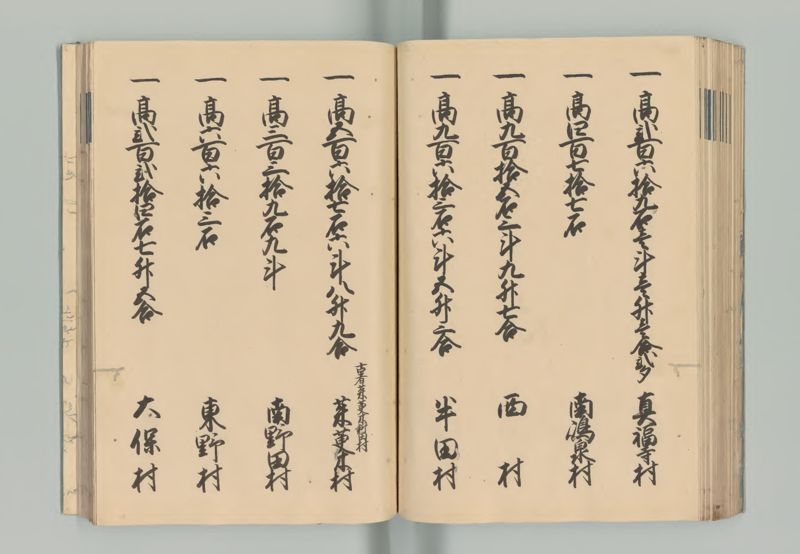 一高弐百六拾九石壱斗壱升壱合弐夕 真福寺村
一高四百七拾七石 南鴻巣村
一高九百拾五石三斗九升七合 西村
一高九百六拾三石六斗五升三合 半田村
一高五百六拾七石六斗八升九合 村
一高三百三拾九石九斗 南野田村
一高六百六拾三石 東野村
一高弐百弐拾四石七升五合 大保村